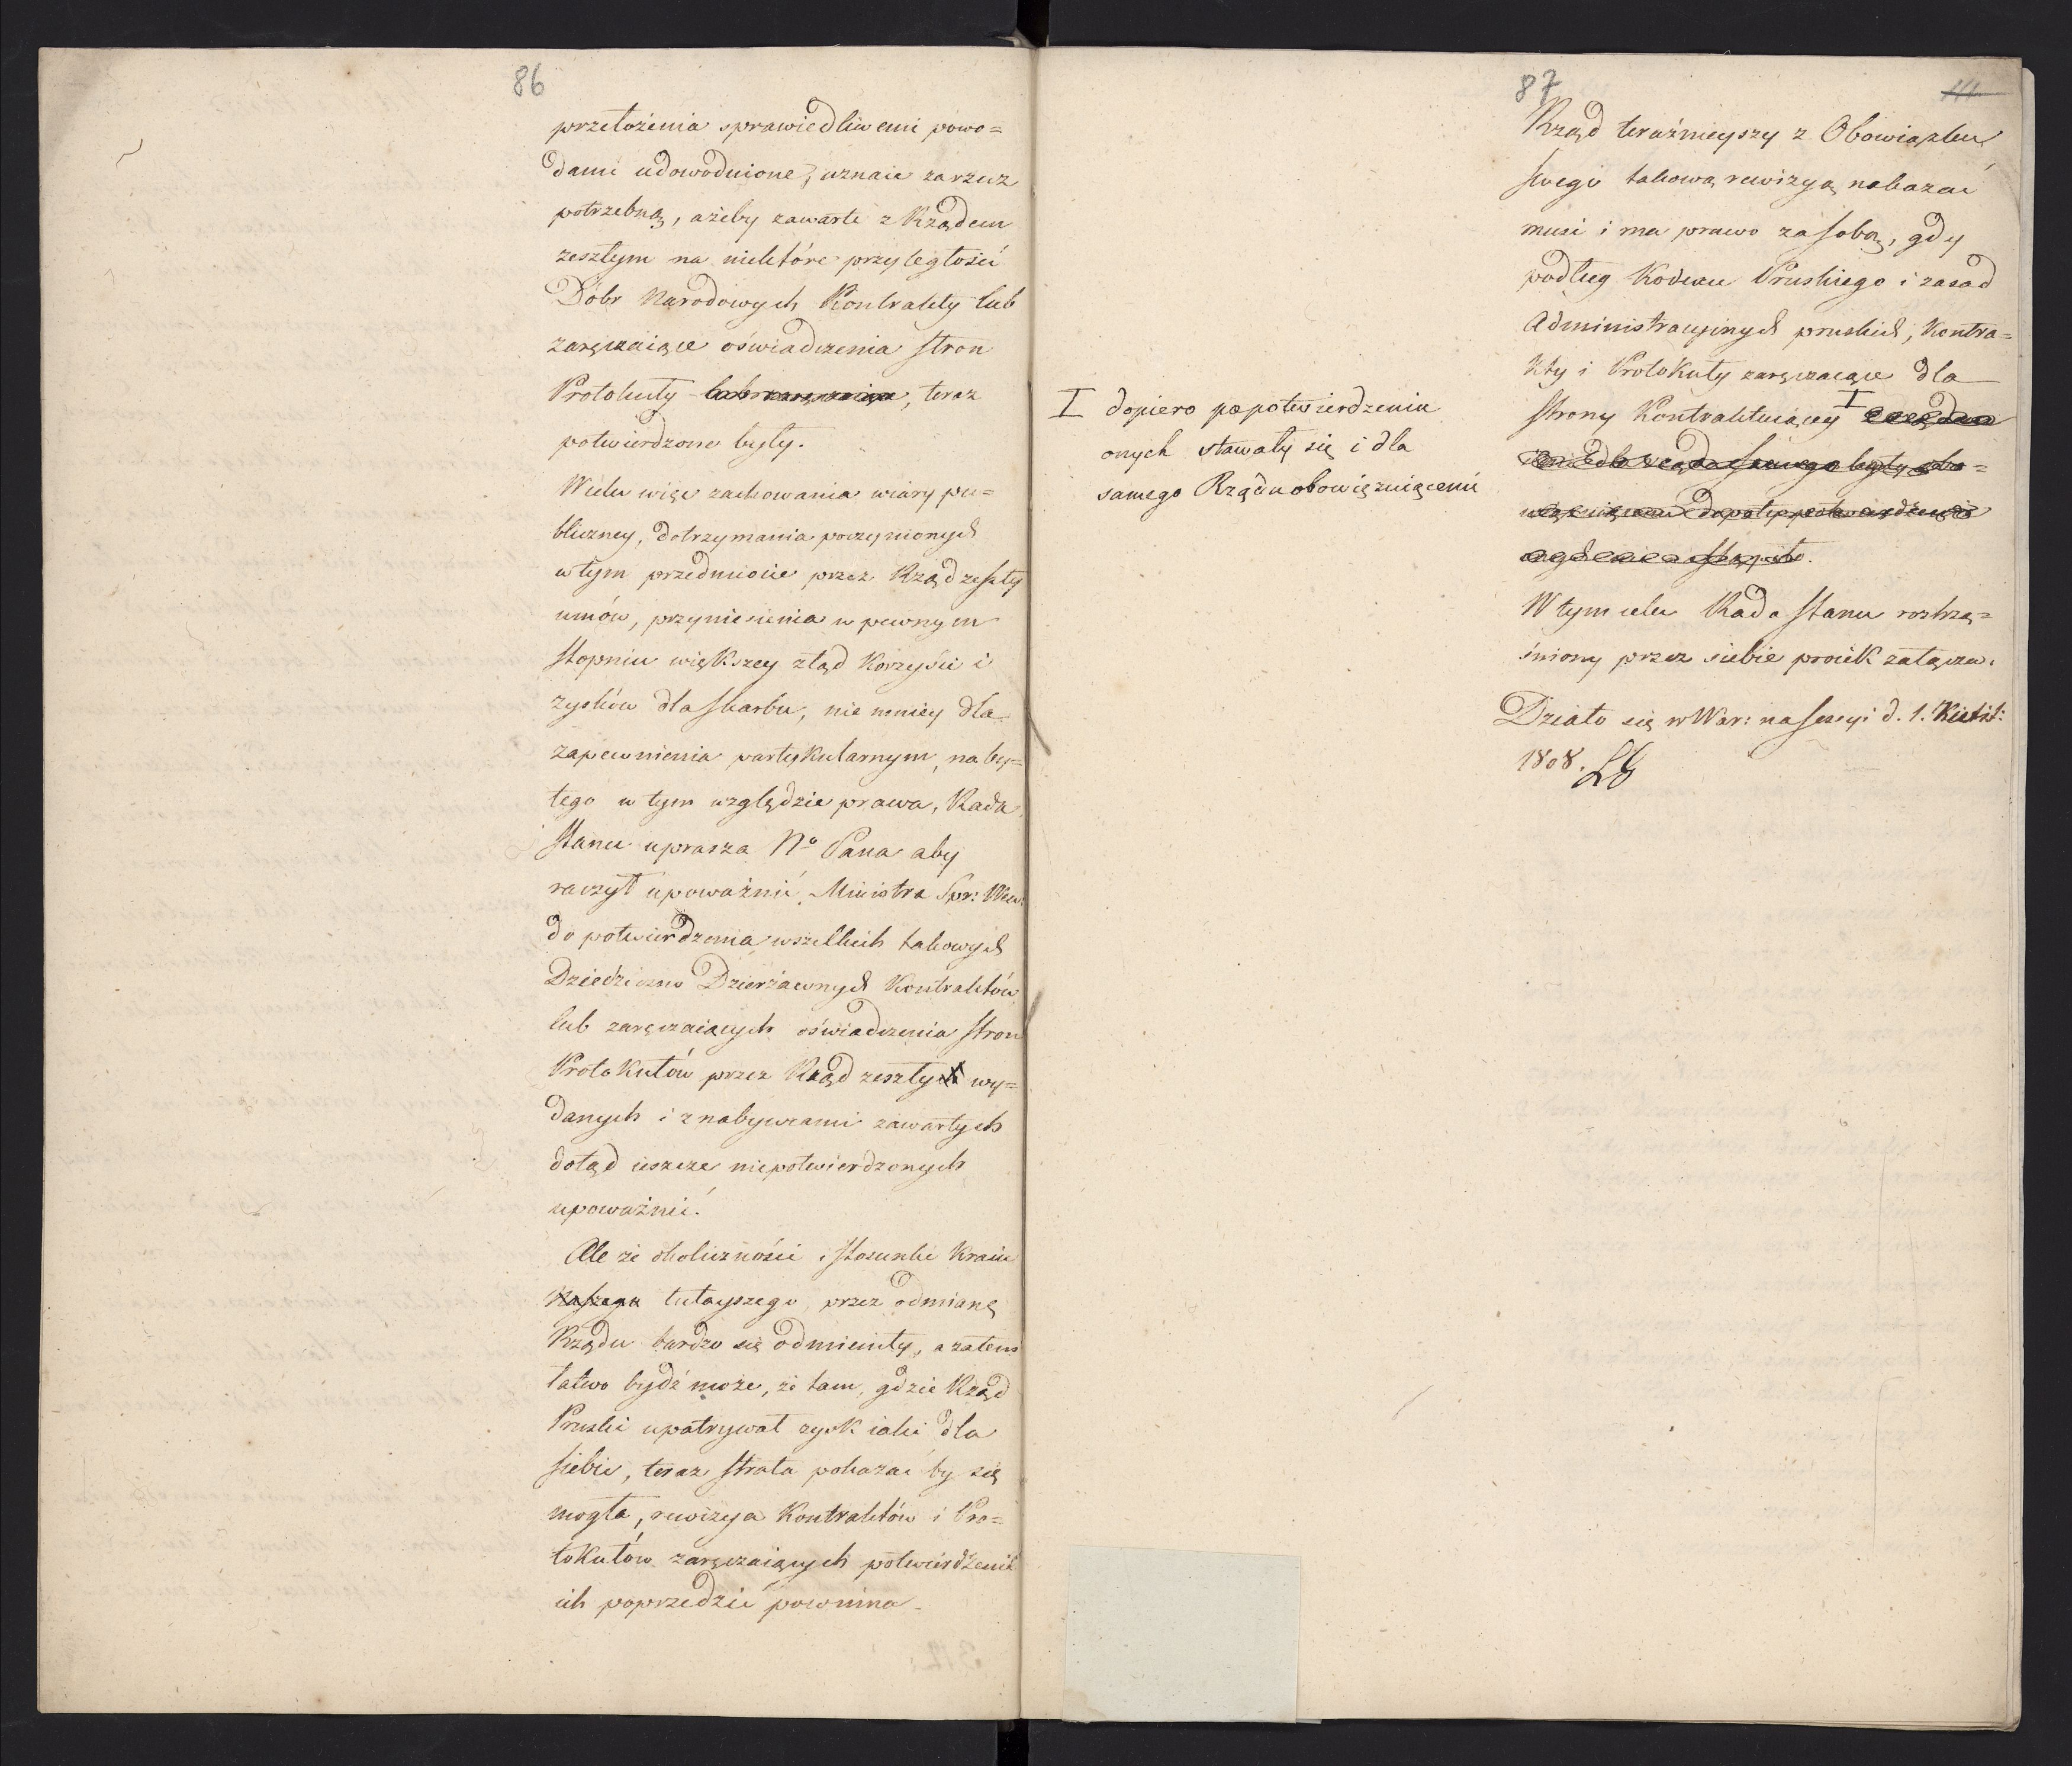 86
przełożenia sprawiedliwemi powo=
dami udowodnione, uznaie za rzecz
potrzebną, ażeby zawarte z Rządem
zeszłym na niektóre przyległości
Dóbr Narodowych Kontrakty lub
zaręczaiące oświadczenia stron
Protokuły teraz
potwierdzone były.
W celu więc zachowania wiary pu=
bliczney, dotrzymania poczynionych
w tym przedmiocie przez Rząd zeszły
umów, przyniesienia w pewnym
stopniu większey ztąd korzyści i
zysków dla skarbu, nie mniey dla
zapewnienia partykularnym, naby=
tego w tym względzie prawa, Rada
Stanu uprasza N° Pana aby
raczył upoważnić Ministra Spr: Wew:
do potwierdzenia wszelkich takowych
Dziedziczno Dzierżawnych Kontraktów
lub zaręczaiących oświadczenia stron
Protokułów przez Rząd zeszły wy=
danych i z nabywcami zawartych
dotąd ieszcze niepotwierdzonych
upoważnić.
Ale że okoliczności i stosunki kraiu
naszego tutayszego przez odmianę
Rządu bardzo się odmieniły, a zatem
łatwo bydź może, że tam, gdzie Rząd
Pruski upatrywał zysk iaki dla
siebie, teraz strata pokazać by się
mogła, rewizya Kontraktów i Pro=
tokułów zaręczaiących potwierdzenie
ich poprzedzić powinna.
87
Rząd teraźnieyszy z Obowiązku
swego takową rewizyą nakazać
musi i ma prawo za sobą, gdy
podług Kodexu Pruskiego i zasad
Administracyinych pruskich, Kontra=
kty i Protokuły zaręczaiące dla
strony Kontraktuiącey I
I dopiero po potwierdzeniu
onych stawały się i dla
samego Rządu obowięzuiącemi
W tym celu Rada Stanu roztrzą=
śniony przez siebie proiekt załącza.
Działo się w War: na Sessyi d. 1. Kwiet:
1808.